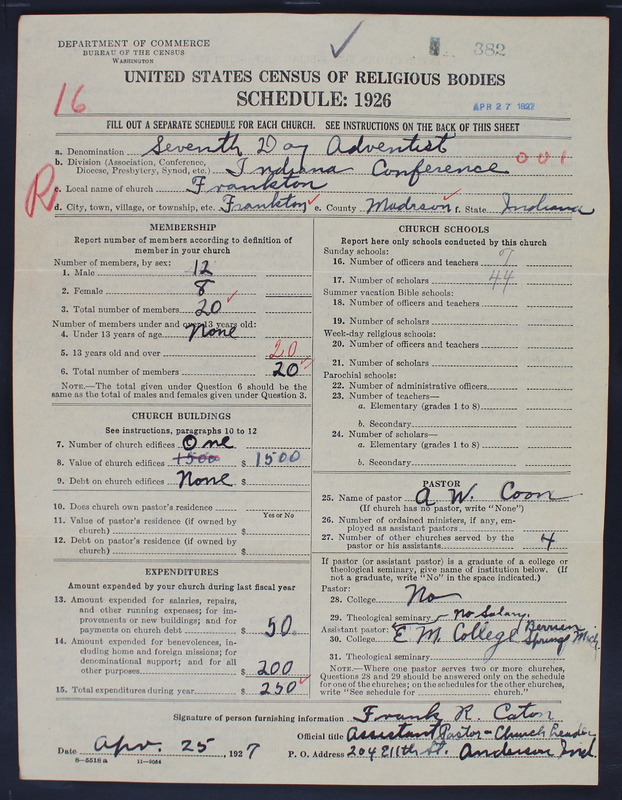 DEPARTMENT OF COMMERCE
BUREAU OF THE CENSUS
WASHINGTON
382
UNITED STATES CENSUS OF RELIGIOUS BODIES
SCHEDULE: 1926
16
APR 27 1927
FILL OUT A SEPARATE SCHEDULE FOR EACH CHURCH. SEE INSTRUCTIONS ON THE BACK OF THIS SHEET
a. Denomination Seventh Day Adventist
b. Division (Association, Conference,
Diocese, Presbytery, Synod, etc.) Indiana Conference 001
R
c. Local name of church Frankton
d. City, town, village, or township, etc. Frankton e. County Madison f. State Indiana
MEMBERSHIP
Report number of members according to definition of
member in your church
Number of members, by sex:
1. Male 12
2. Female 8
3. Total number of members 20
Number of members under and over 13 years old:
4. Under 13 years of age None
5. 13 years old and over 20
6. Total number of members 20
NOTE.—The total given under Question 6 should be the
same as the total of males and females given under Question 3.
CHURCH BUILDINGS
See instructions, paragraphs 10 to 12
7. Number of church edifices One
8. Value of church edifices 1500 $ 1500
9. Debt on church edifices None $
10. Does church own pastor's residence
Yes or No
11. Value of pastor's residence (if owned by
church) $
12. Debt on pastor's residence (if owned by
church) $
EXPENDITURES
Amount expended by your church during last fiscal year
13. Amount expended for salaries, repairs,
and other running expenses; for im-
provements or new buildings; and for
payments on church debt $ 50.
14. Amount expended for benevolences, in-
cluding home and foreign missions; for
denominational support; and for all
other purposes $ 200
15. Total expenditures during year $ 250
CHURCH SCHOOLS
Report here only schools conducted by this church
Sunday schools:
16. Number of officers and teachers 7
17. Number of scholars 44
Summer vacation Bible schools:
18. Number of officers and teachers
19. Number of scholars
Week-day religious schools:
20. Number of officers and teachers
21. Number of scholars
Parochial schools:
22. Number of administrative officers
23. Number of teachers—
a. Elementary (grades 1 to 8)
b. Secondary
24. Number of scholars—
a. Elementary (grades 1 to 8)
b. Secondary
PASTOR
25. Name of pastor A. W. Coon
(If church has no pastor, write "None")
26. Number of ordained ministers, if any, em-
ployed as assistant pastors
27. Number of other churches served by the
pastor or his assistants 4
If pastor (or assistant pastor) is a graduate of a college or
theological seminary, give name of institution below. (If
not a graduate, write "No" in the space indicated.)
Pastor:
28. College No
29. Theological seminary no Salary.
Assistant pastor:
30. College E M College Berrien Springs Mich.
31. Theological seminary
NOTE.—Where one pastor serves two or more churches,
Questions 28 and 29 should be answered only on the schedule
for one of the churches; on the schedules for the other churches,
write "See schedule for church."
Signature of person furnishing information Frank R. Caton
Official title Assistant Pastor - Church Leader
Date Apr. 25, 1927 P. O. Address 204 E 11th St. Anderson Ind.
8-5518a 11-9064